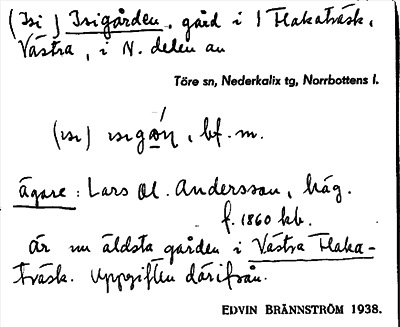 (Isi) Isigården, gård i Flakaträsk,
Västra, i N. delen av
Töre sn, Nederkalix tg, Norrbottens l.
bf. m.
ägare: Lars Ol. Andersson, häg.
f. 1860 kb.
är nu äldsta gården i Västra Flaka-
träsk. Uppgiften därifrån.
EDVIN BRÄNNSTRÖM 1938.